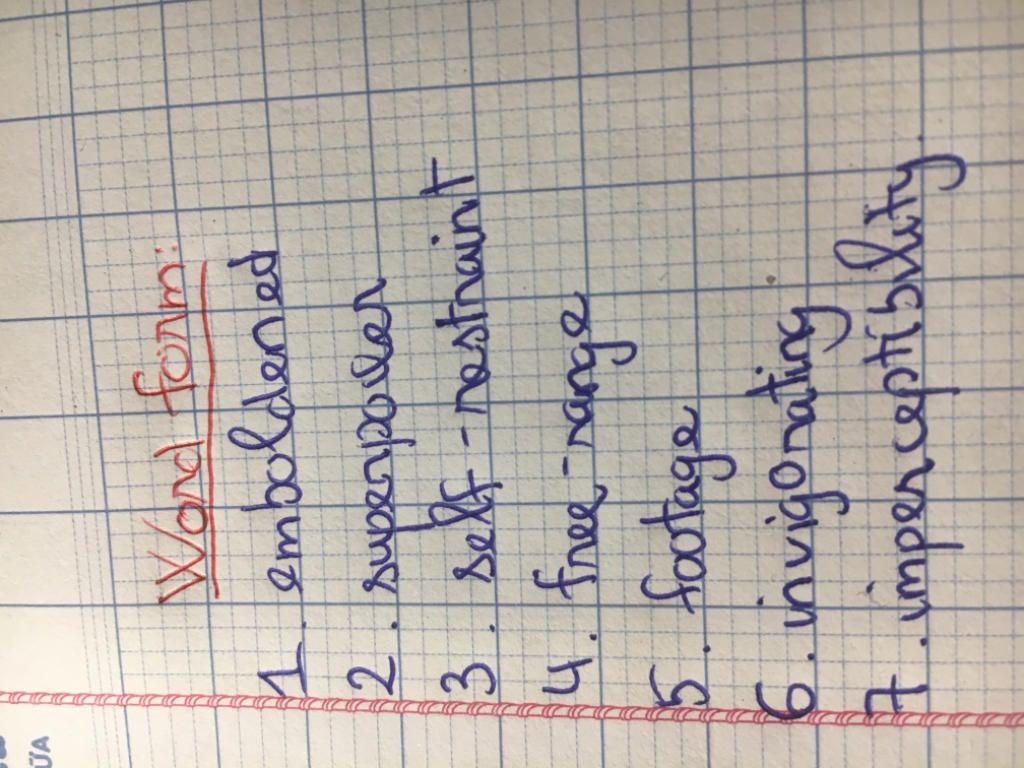 Word form:
1. emboldened
2. superpower
3. self-restraint
4. free-range
5. footage
6. invigorating
7. imperceptibility